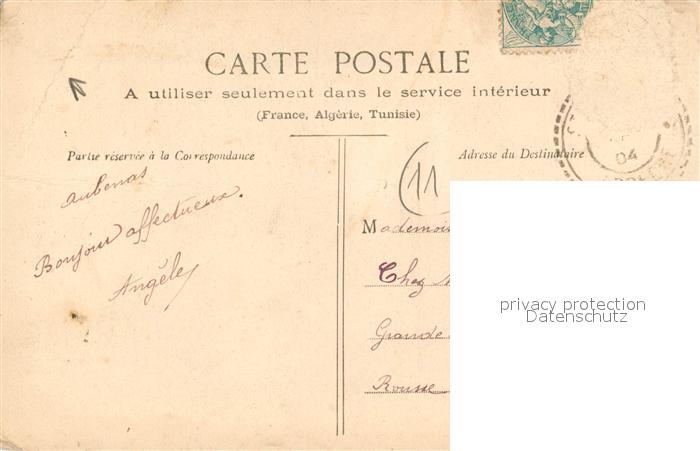 CARTE POSTALE
A utiliser seulement dans le service intérieur
(France, Algérie, Tunisie)
Partie réservée à la Correspondance
Adresse du Destinataire
04
11
Aubenas
Bonjour affectueux.
Angèle
Mademois
Chez
Grande
Rousse
privacy protection
Datenschutz